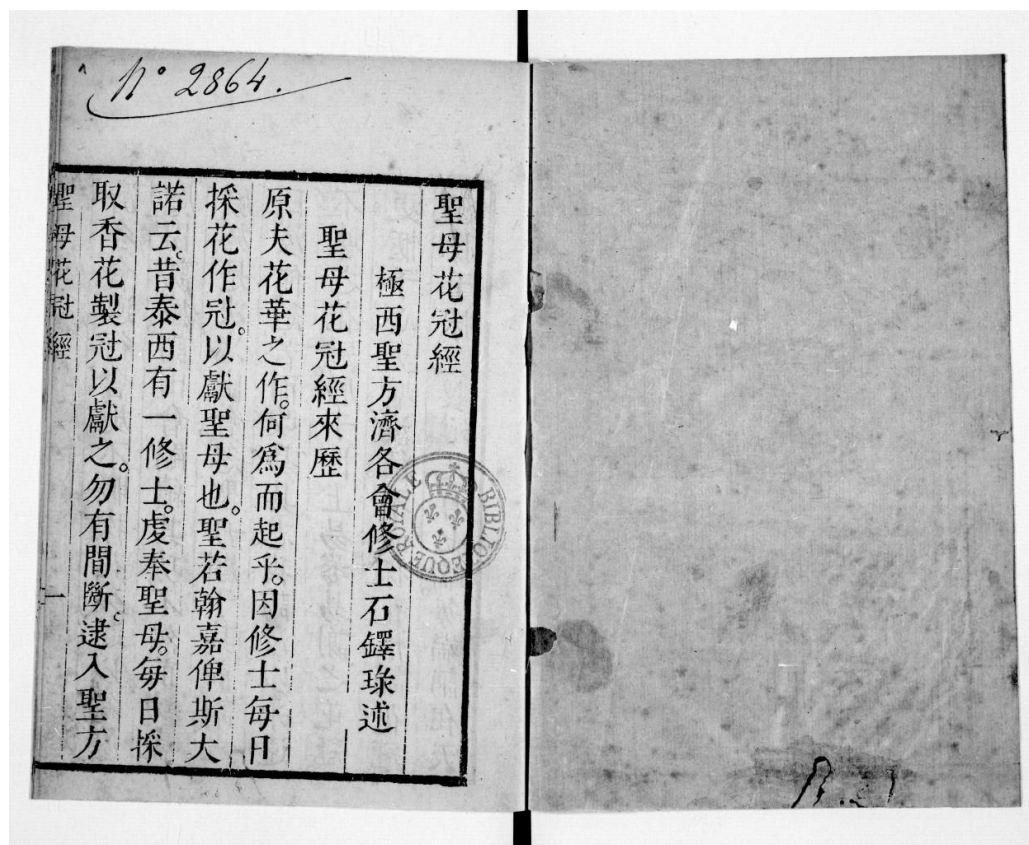 N° 2864.
聖母花冠經
極西聖方濟各會修士石鐸琭述
聖母花冠經來歷
原夫花華之作。何爲而起乎。因修士每日
採花作冠。以獻聖母也。聖若翰嘉俾斯大
諾云。昔泰西有一修士。虔奉聖母。每日採
取香花製冠以獻之。勿有間斷。逮入聖方
聖母花冠經 一
BIBLIOTHEQUE ROIALE